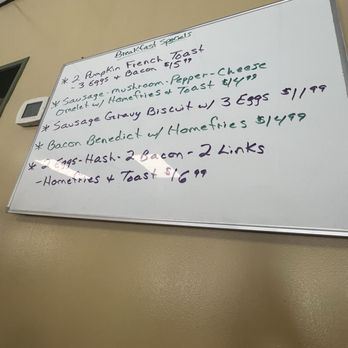 Breakfast Specials
* 2 Pumpkin French Toast
- 3 Eggs & Bacon $15.99
* Sausage-mushroom-Pepper-Cheese
Omelet w/ Homefries & Toast $14.99
* Sausage Gravy Biscuit w/ 3 Eggs $11.99
* Bacon Benedict w/ Homefries $14.99
* 2 Eggs-Hash-2 Bacon-2 Links
-Homefries & Toast $16.99